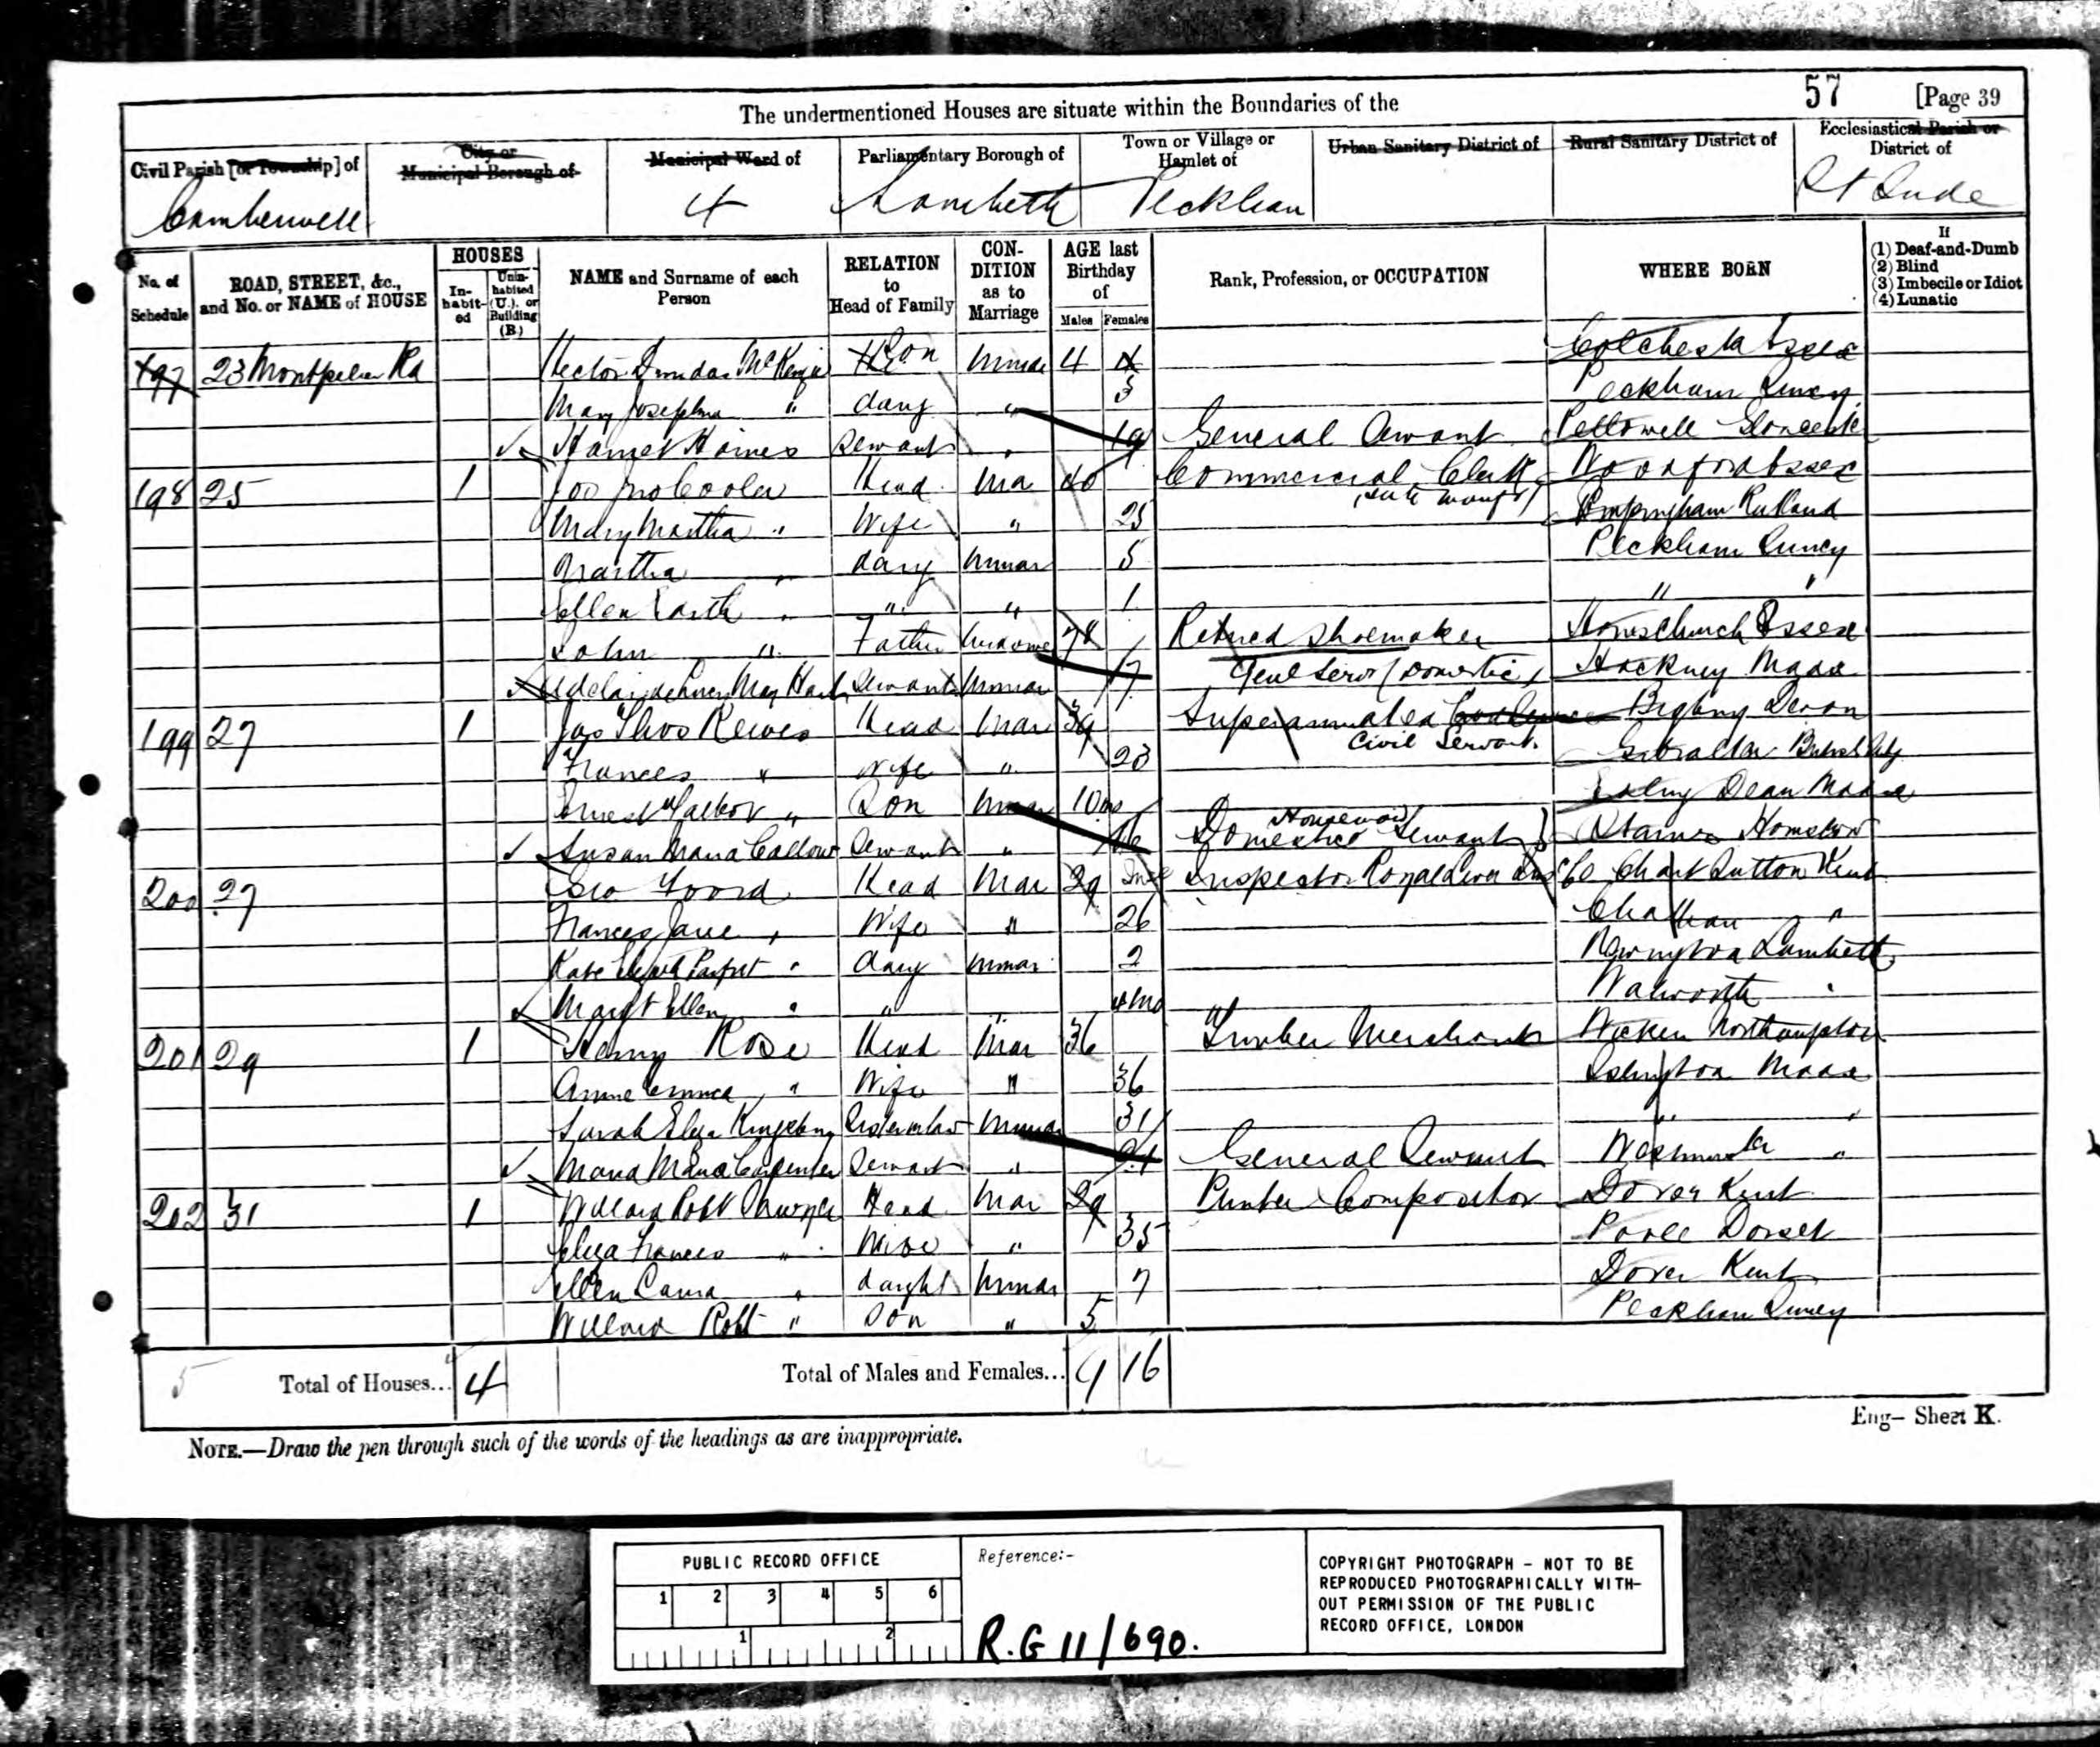 57 [Page 39
The undermentioned Houses are situate within the Boundaries of the
Civil Parish [or Township] of
City or Municipal Borough of
Municipal Ward of
Parliamentary Borough of
Town or Village or Hamlet of
Urban Sanitary District of
Rural Sanitary District of
Ecclesiastical Parish or District of
Camberwell 4 Lambeth Peckham St Jude
No. of Schedule
ROAD, STREET, &c., and No. or NAME of HOUSE
HOUSES
In-habit-ed
Unin-habited (U.), or Building (B.)
NAME and Surname of each Person
RELATION to Head of Family
CON-DITION as to Marriage
AGE last Birthday of
Males Females
Rank, Profession, or OCCUPATION
WHERE BORN
If
(1) Deaf-and-Dumb
(2) Blind
(3) Imbecile or Idiot
(4) Lunatic
197 23 Montpelier Rd Hector Dundas McKenzie Son Unmar 4 Colchester Essex
Mary Josephine " daug " 3 Peckham Surrey
Harriet Haines Servant " 19 General Servant
198 25 1 Head Mar 40 Commercial Clerk Woodford Essex
Mary Martha " Wife " 25 Empingham Rutland
Martha " daug Unmar 5 Peckham Surrey
Ellen " " " 1 " "
John " Father Widower 78 Retired Shoemaker Hornchurch Essex
Servant Unmar 17 Genl Serv (Domestic) Hackney Maax
199 27 1 Jas Thos Head Mar 39 Superannuated Civil Servant Bigbury Devon
Frances " Wife " 23 Gibraltar
Ernest " Son Unmar 10 mo Ealing Dean
Susan Maria Callow Servant " 16 Housemaid Domestic Servant Staines
200 27 Geo Foord Head Mar 29 Inspector Chart Sutton Kent
Frances Jane " Wife " 26 Chatham "
Kate " daug Unmar 2 Newington Lambeth
Margt Ellen " " " 4 mo Walworth "
201 29 1 Henry Rose Head Mar 36 Timber Merchant Wicken Northampton
Annie Emma " Wife " 36 Islington
Sarah Eliza Kingsbury Sister in law Unmar 31 " "
Maria Carpenter Servant " 21 General Servant Westminster "
202 31 1 William Robt Head Mar 29 Printer Compositor Dover Kent
Eliza Frances " Wife " 35 Poole Dorset
Ellen Laura " daught Unmar 7 Dover Kent
William Robt " Son " 5 Peckham Surrey
5 Total of Houses... 4 Total of Males and Females... 9 16
Eng— Sheet K.
NOTE.—Draw the pen through such of the words of the headings as are inappropriate.
PUBLIC RECORD OFFICE
1 2 3 4 5 6
1 2
Reference:-
R.G 11/690.
COPYRIGHT PHOTOGRAPH – NOT TO BE
REPRODUCED PHOTOGRAPHICALLY WITH-
OUT PERMISSION OF THE PUBLIC
RECORD OFFICE, LONDON